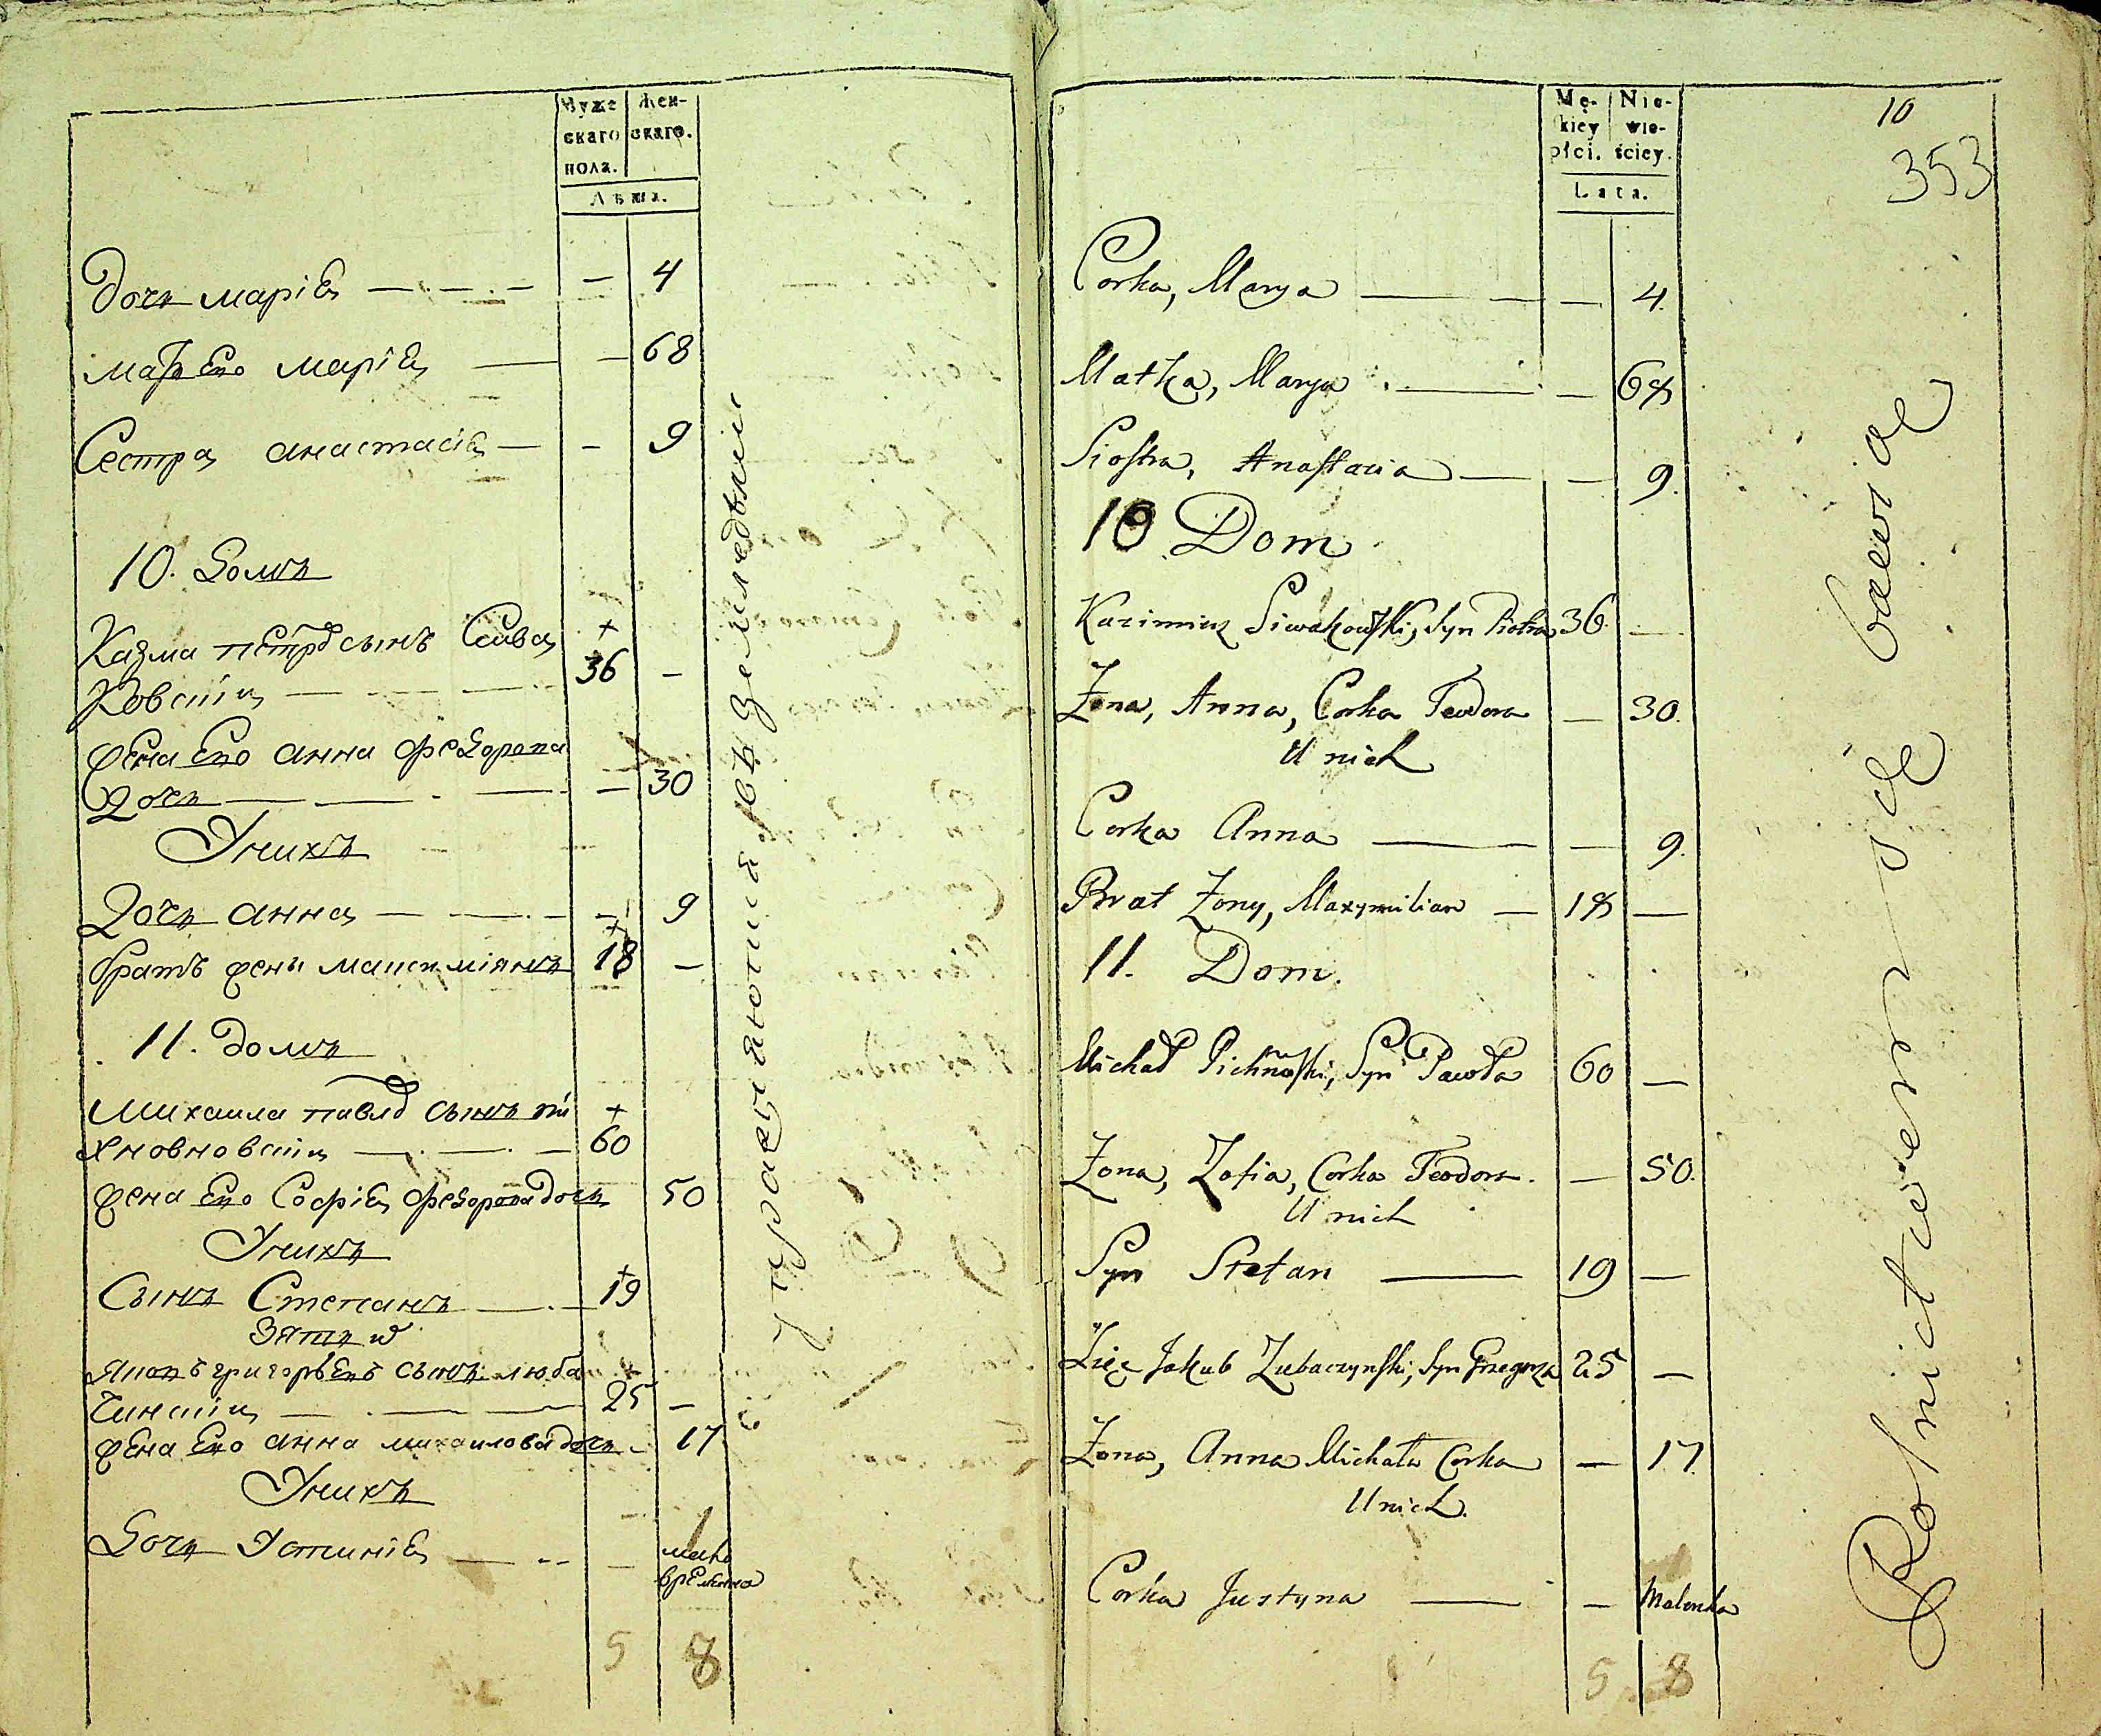 Муже
скаго
пола.
Жен-
скаго.
Лѣта.
дочь марія — — 4
мать Его марія — — 68
Сестра анастасія — — 9
10. Домъ
Казма петров сынъ Сива
ковскій — 36 —
жена Его анна федорова
дочь — — 30
У нихъ
Дочь анна — — 9
братъ жены максиміянъ 18 —
11. домъ
Михаила павлов сынъ пи
хновновскій — 60
жена Его Софія федорова дочь 50
У нихъ
Сынъ Степанъ — 19
Зять
Яковъ григорьевъ сынъ люба
чинскій — 25 —
жена Его анна михаилова дочь — 17
У нихъ
Дочь Устинія — —
5 8
упражняются въ земледѣліи
Mę-
skiey
płci.
Nie-
wie-
ściey.
Lata.
10
353
Corka, Marya — — 4.
Matka, Marya — — 68
Siostra, Anastazia — — 9.
10. Dom
Kazimierz Siwakowski, Syn Piotra 36. —
Żona, Anna, Corka Teodora — 30.
U nich
Corka Anna — — 9.
Brat Żony, Maxymilian — 18 —
11. Dom.
Michał Pichnoski, Syn Pawła 60 —
Żona, Zofia, Corka Teodora. — 50.
U nich
Syn Stefan — 19 —
Zięć Jakub Lubaczynski, Syn Grzegorza 25 —
Żona, Anna Michała Corka — 17
U nich.
Corka Justyna — — Malenka
5 8
Rolnictwem się bawiąc